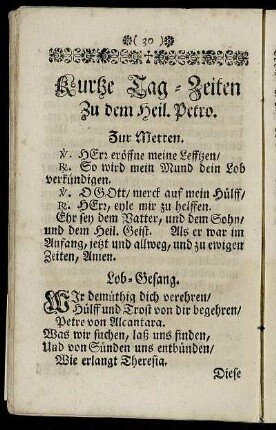 ( 30 )
Kurtze Tag-Zeiten
Zu dem Heil. Petro.
Zur Metten.
℣. HErr eröffne meine Lefftzen/
℟. So wird mein Mund dein Lob
verkündigen.
℣. O GOtt/ merck auf mein Hülff/
℟. HErr, eyle mir zu helffen.
Ehr sey dem Vatter, und dem Sohn/
und dem Heil. Geist. Als er war im
Anfang, jetzt und allweg, und zu ewigen
Zeiten, Amen.
Lob-Gesang.
WIr demüthig dich verehren/
Hülff und Trost von dir begehren/
Petre von Alcantara.
Was wir suchen, laß uns finden,
Und von Sünden uns entbünden/
Wie erlangt Theresia.
Diese